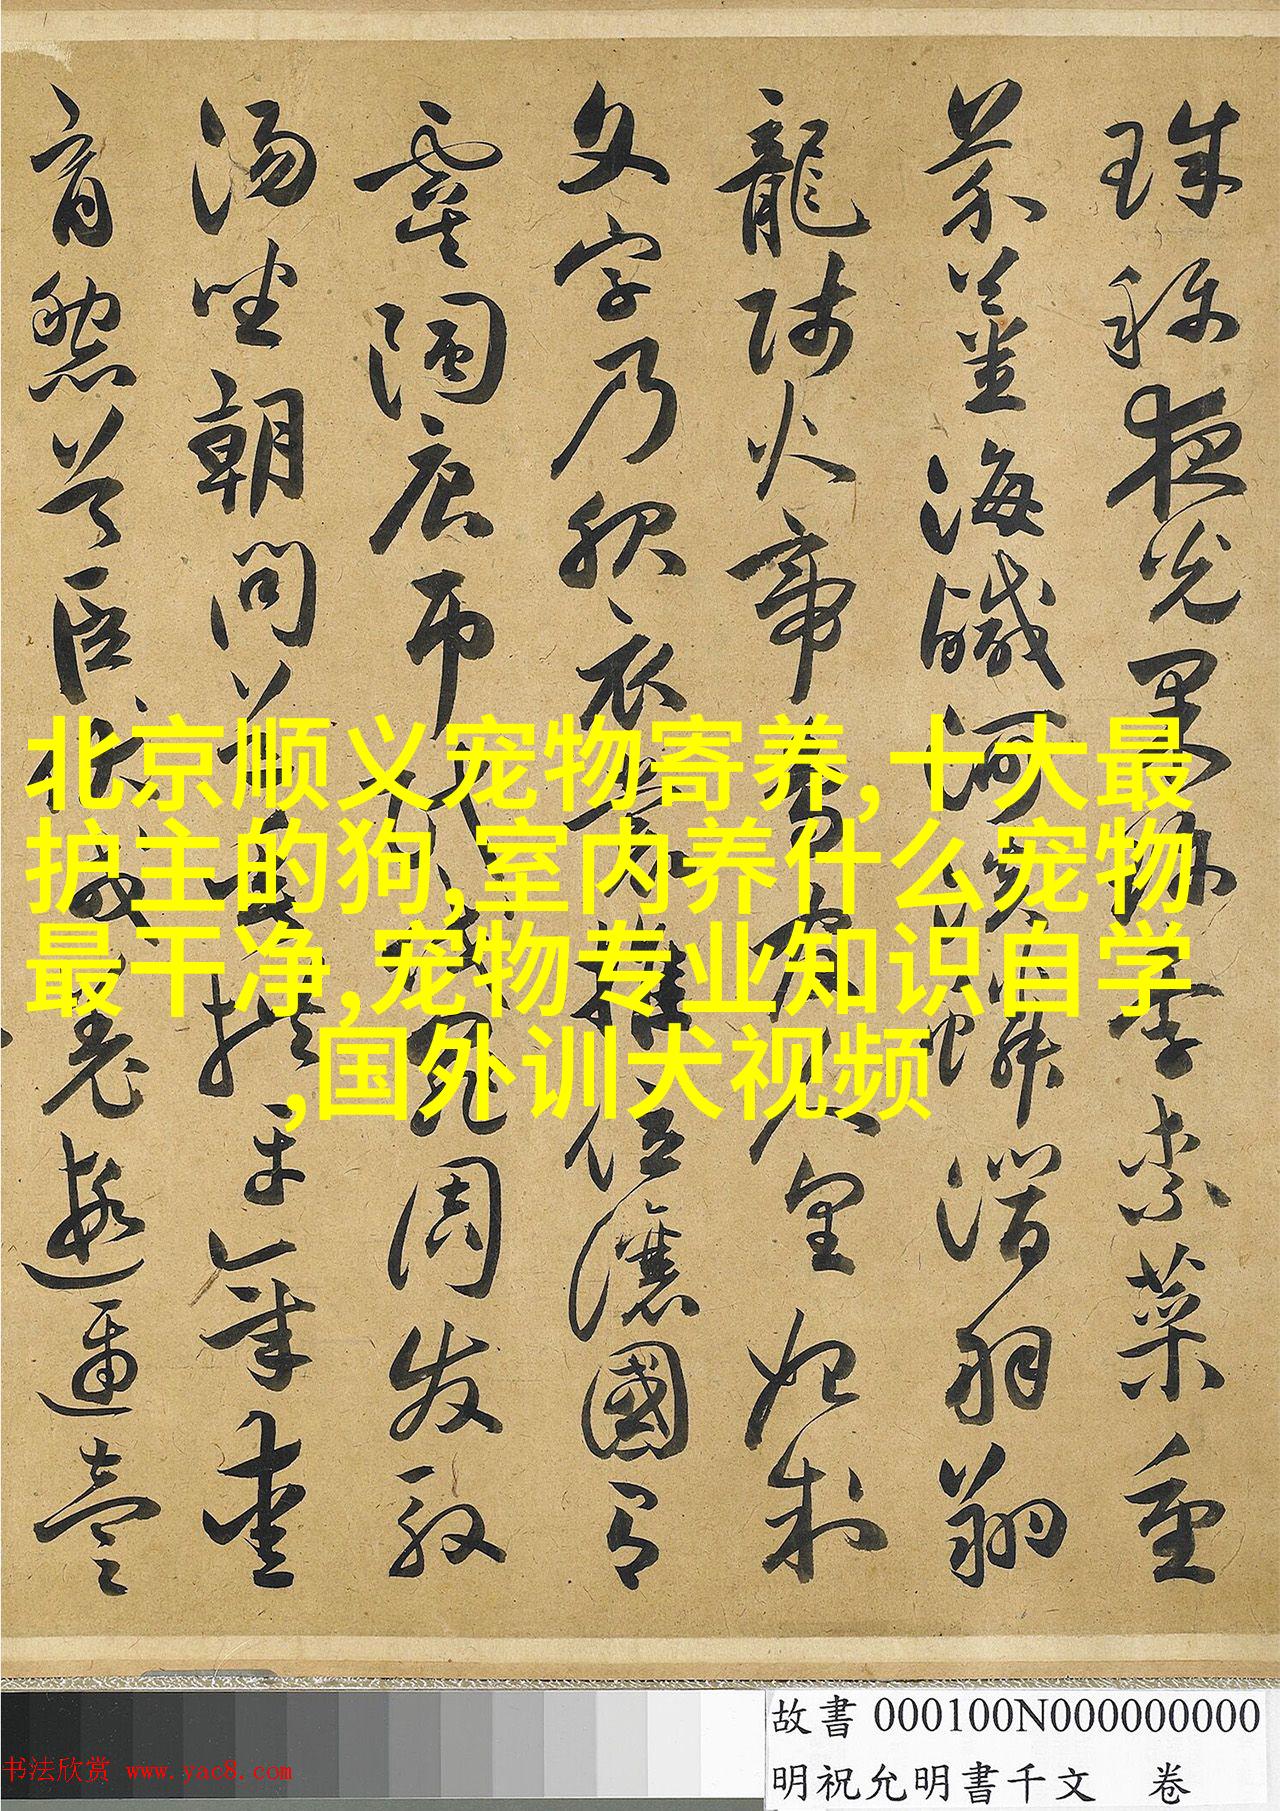 珠称夜光果珍李柰菜重
芥薑海鹹河淡鱗潛羽翔
龍師火帝鳥官人皇始制
文字乃服衣裳推位讓國有
虞陶唐弔民伐罪周发殷
湯坐朝問道垂拱平章愛
育黎首臣伏戎羌遐邇壹
北京顺义宠物寄养,十大最
护主的狗,室内养什么宠物
最干净,宠物专业知识自学
,国外训犬视频
故書 000100N000000000
明祝允明書千文 卷
书法欣赏 www.yac8.com